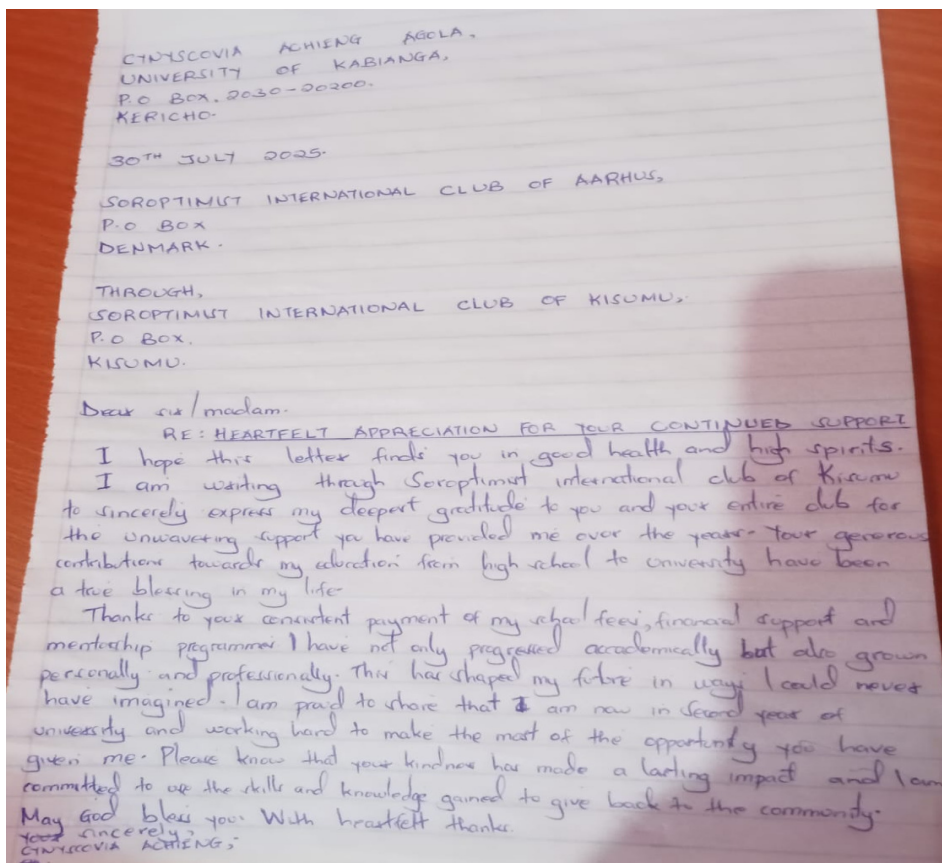 CYNYSCOVIA ACHIENG AGOLA.
UNIVERSITY OF KABIANGA,
P.O BOX. 2030-20200.
KERICHO.
30TH JULY 2025.
SOROPTIMIST INTERNATIONAL CLUB OF AARHUS,
P.O BOX
DENMARK.
THROUGH,
SOROPTIMIST INTERNATIONAL CLUB OF KISUMU,
P.O BOX.
KISUMU.
Dear sir/madam.
RE: HEARTFELT APPRECIATION FOR YOUR CONTINUED SUPPORT
I hope this letter finds you in good health and high spirits.
I am writing through Soroptimist international club of Kisumu
to sincerely express my deepest gratitude to you and your entire club for
the unwavering support you have provided me over the years. Your generous
contributions towards my education from high school to university have been
a true blessing in my life.
Thanks to your consistent payment of my school fees, financial support and
mentorship programmes I have not only progressed accademically but also grown
personally and professionally. This has shaped my future in ways I could never
have imagined. I am proud to share that I am now in second year of
university and working hard to make the most of the opportunity you have
given me. Please know that your kindness has made a lasting impact and I am
committed to use the skills and knowledge gained to give back to the community.
May God bless you. With heartfelt thanks.
Your sincerely,
CYNYSCOVIA ACHIENG,